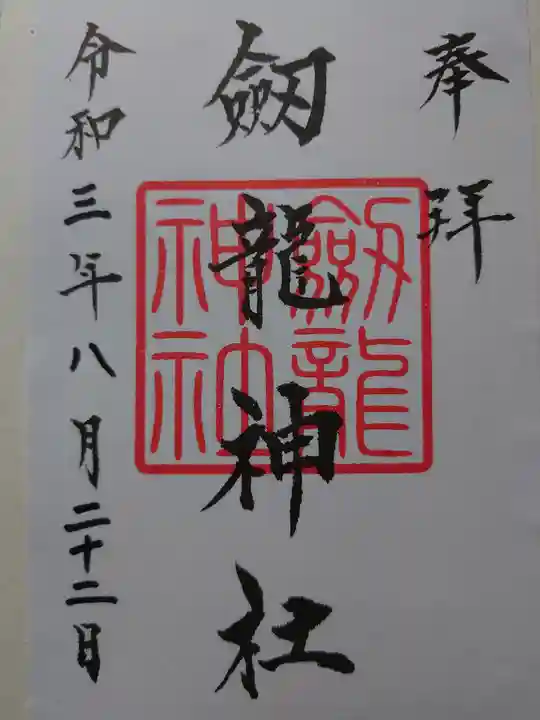 奉拝
劔龍神社
劔龍神社
令和三年八月二十二日